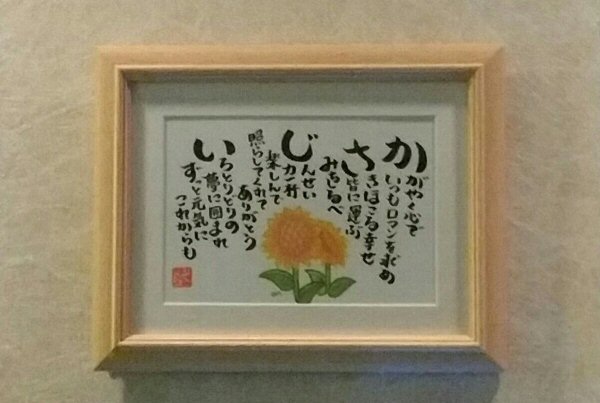 かがやく心で
いつもロマンを求め
さきほこる幸せ
皆に運ぶ
みちしるべ
じんせい
力一杯
楽しんで
照らしてくれて
ありがとう
いろとりどりの
夢に囲まれ
ずっと元気に
これからも